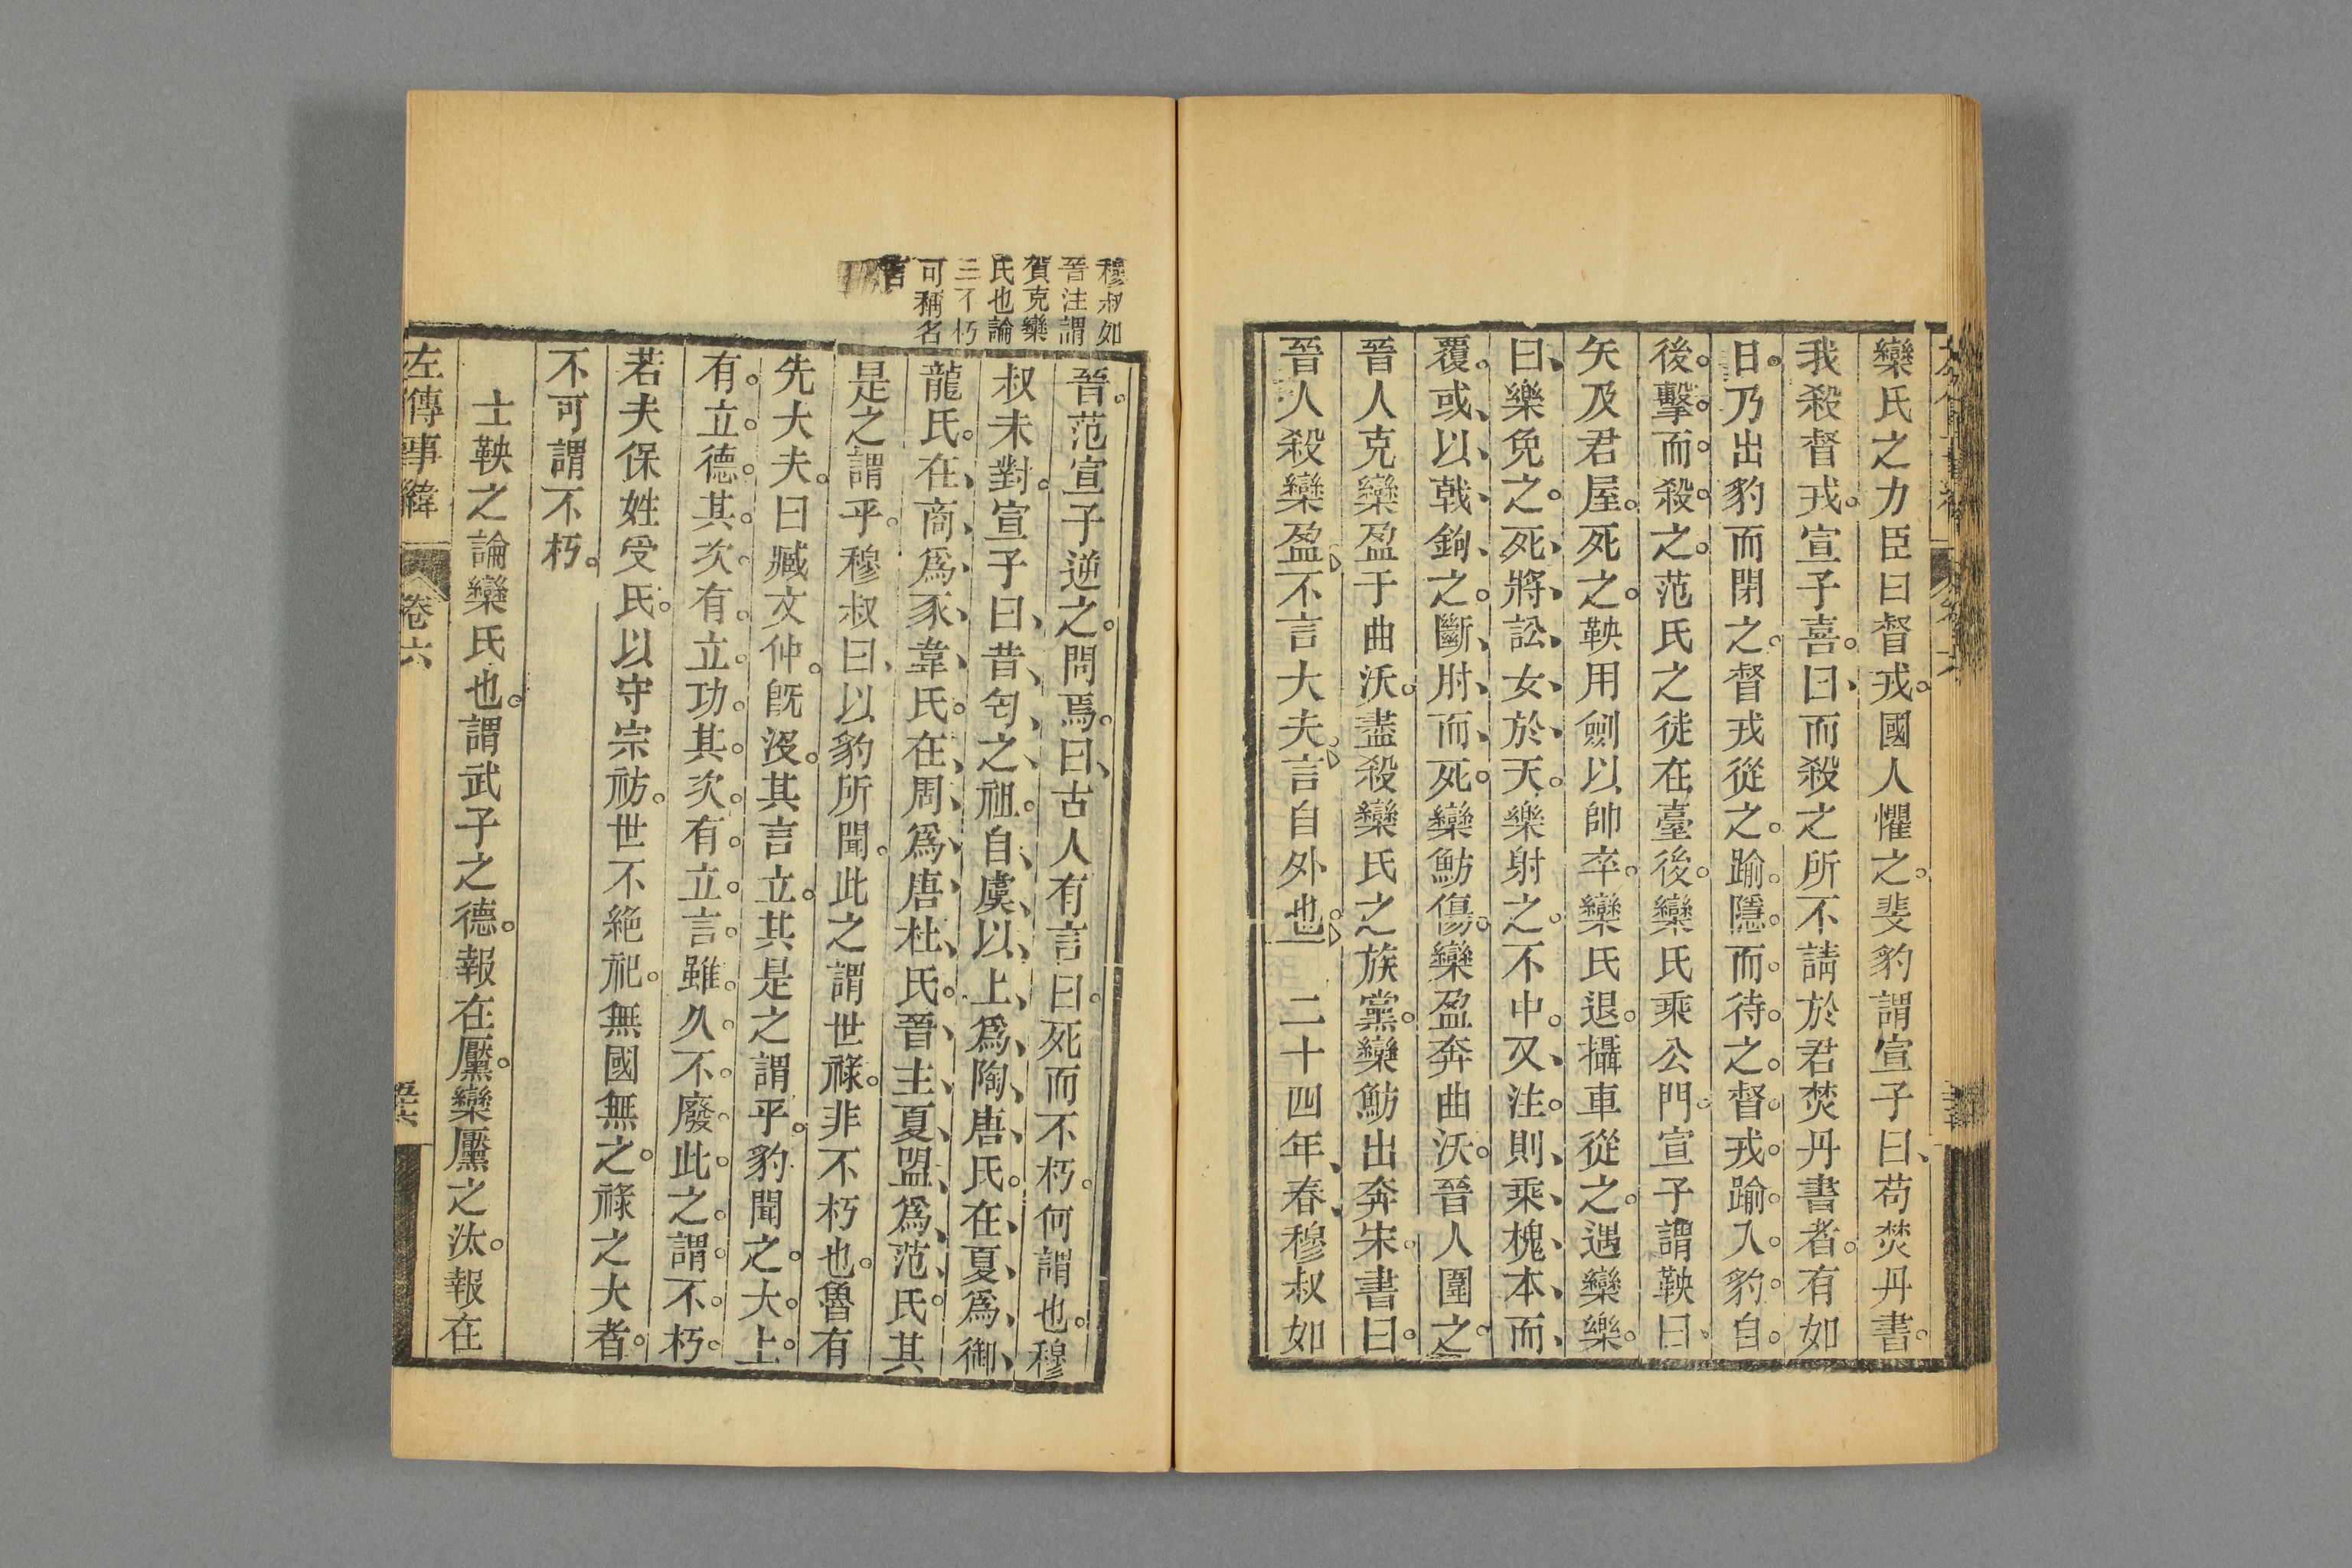 欒氏之力臣曰督戎。國人懼之。斐豹謂宣子曰、苟焚丹書。
我殺督戎。宣子喜。曰、而殺之所不請於君焚丹書者。有如
日。乃出豹而閉之。督戎從之。踰隱。而待之。督戎。踰入。豹自。
後。擊。而。殺之。范氏之徒在臺後。欒氏乘公門。宣子謂鞅曰、
矢及君屋。死之。鞅用劍以帥卒。欒氏退。攝車從之。遇欒樂。
曰、樂免之。死、將、訟、女、於、天。樂射之。不中。又、注。則、乘、槐、本、而、
覆。或、以、戟、鉤、之。斷、肘、而、死。欒魴傷。欒盈奔曲沃。晉人圍之。
晉人克欒盈于曲沃。盡殺欒氏之族黨。欒魴出奔宋。書曰。
晉人殺欒盈不言大夫。言自外也。二十四年、春、穆叔如
穆叔如
晉注謂
賀克欒
氏也論
三不朽
可稱名
言
晉。范宣子逆之。問焉。曰、古人有言曰。死而不朽。何謂也。穆
叔未對。宣子曰、昔、匄、之、祖。自、虞、以、上、爲、陶、唐、氏。在、夏、爲、御、
龍氏。在、商、爲、豕、韋、氏。在、周、爲、唐、杜、氏。晉、主、夏、盟、爲、范、氏。其
是之謂乎。穆叔曰、以豹所聞。此之謂世祿。非不朽也。魯有
先大夫。曰臧文仲。既沒。其言立。其是之謂乎。豹聞之。大。上。
有。立。德。其。次。有。立。功。其。次。有。立。言。雖。久。不。廢。此。之。謂。不。朽。
若夫保姓受氏。以守宗祊。世不絕祀。無國無之。祿之大者。
不可謂不朽。
士鞅之論欒氏也。謂武子之德。報在黶。欒黶之汰。報在
左傳事緯
卷六